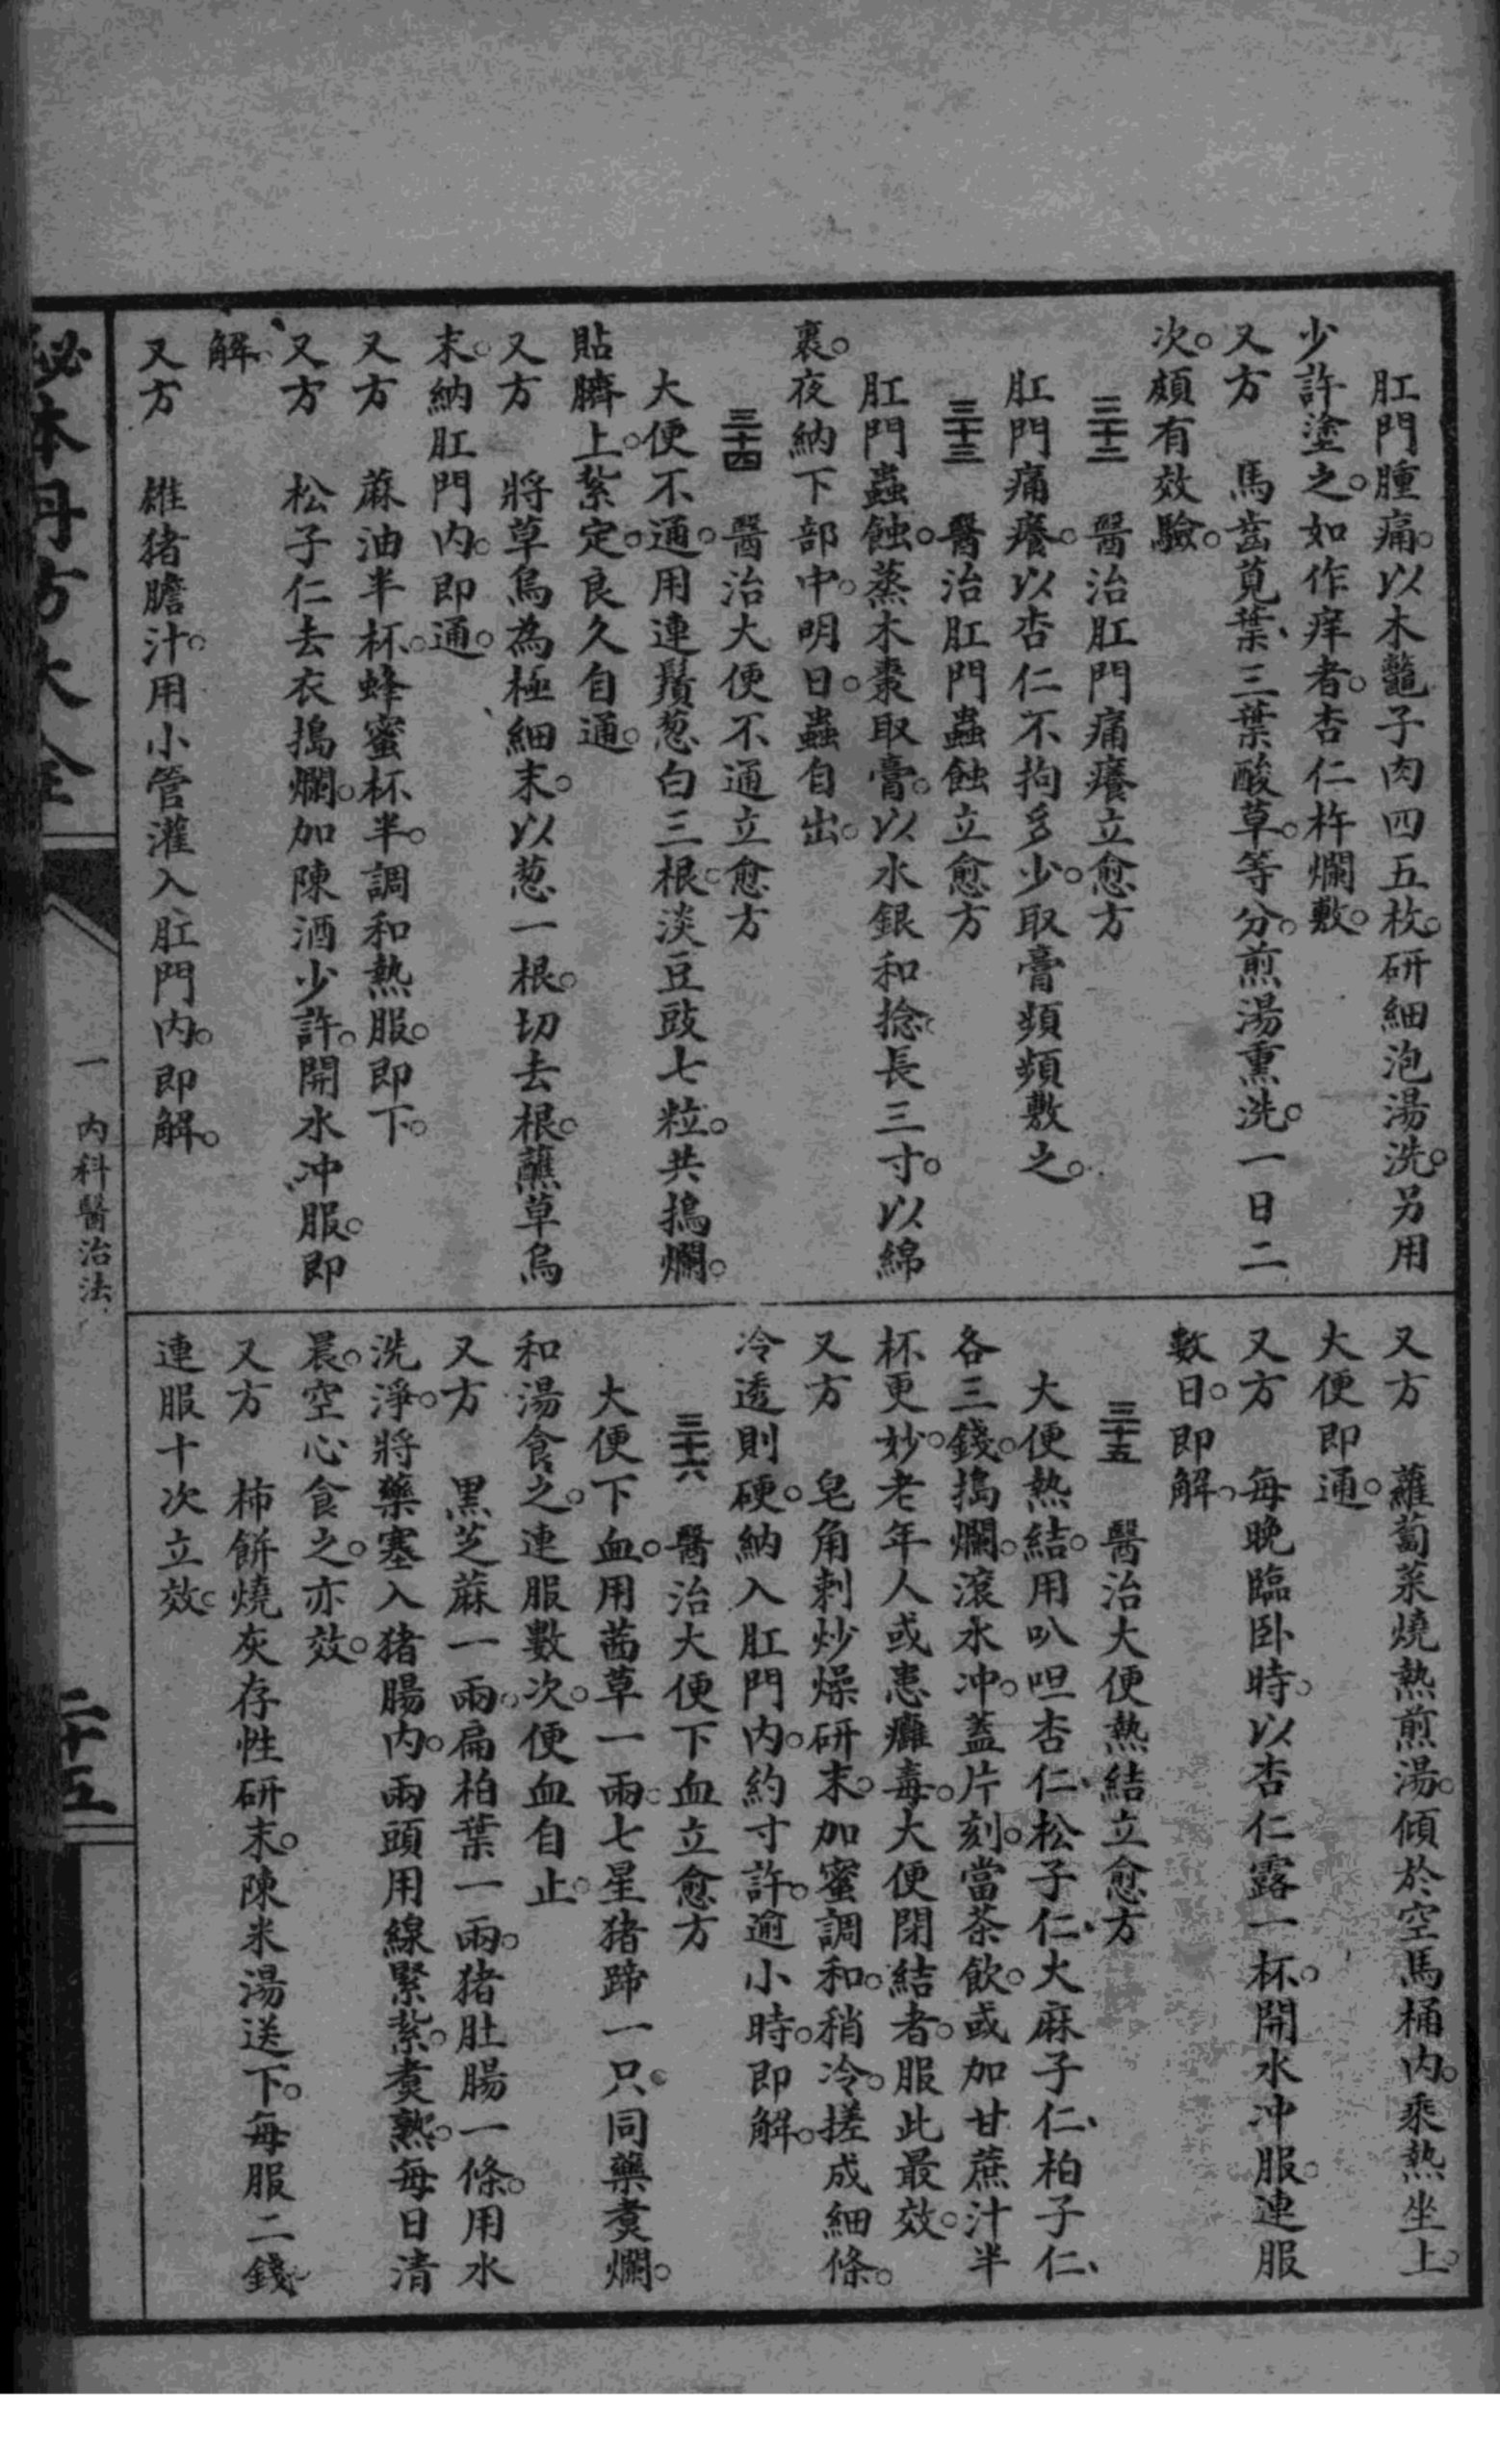 肛門腫痛。以木鼈子肉四五枚。研細泡湯洗。另用
少許塗之。如作痒者。杏仁杵爛敷。
又方　馬齒莧葉、三葉酸草。等分。煎湯熏洗。一日二
次。頗有效驗。
三十二　醫治肛門痛癢立愈方
肛門痛癢。以杏仁不拘多少。取膏頻頻敷之。
三十三　醫治肛門蟲蝕立愈方
肛門蟲蝕。蒸木棗取膏。以水銀和捻。長三寸。以綿
裹。夜納下部中。明日。蟲自出。
三十四　醫治大便不通立愈方
大便不通。用連鬚葱白三根。淡豆豉七粒。共搗爛。
貼臍上。紮定。良久自通。
又方　將草烏為極細末。以葱一根。切去根。蘸草烏
末。納肛門內。即通。
又方　蔴油半杯。蜂蜜杯半。調和熱服。即下。
又方　松子仁去衣搗爛。加陳酒少許。開水冲服。即
解。
又方　雄猪膽汁。用小管灌入肛門內。即解。
又方　蘿蔔菜燒熱煎湯。傾於空馬桶內。乘熱坐上。
大便即通。
又方　每晚臨卧時。以杏仁露一杯。開水冲服。連服
數日。即解。
三十五　醫治大便熱結立愈方
大便熱結。用叭呾杏仁、松子仁、大麻子仁、柏子仁、
各三錢。搗爛。滾水冲。蓋片刻。當茶飲。或加甘蔗汁半
杯更妙。老年人或患癰毒。大便閉結者。服此最效。
又方　皂角刺炒燥研末。加蜜調和。稍冷。搓成細條。
冷透則硬。納入肛門內。約寸許。逾小時。即解。
三十六　醫治大便下血立愈方
大便下血。用茜草一兩。七星猪蹄一只。同藥煑爛。
和湯食之。連服數次。便血自止。
又方　黑芝蔴一兩。扁柏葉一兩。猪肚腸一條。用水
洗淨。將藥塞入猪腸內。兩頭用線緊紮。煑熟。每日清
晨。空心食之。亦效。
又方　柿餅燒灰存性研末。陳米湯送下。每服二錢。
連服十次立效。
秘本丹方大全
一　內科醫治法
二十五